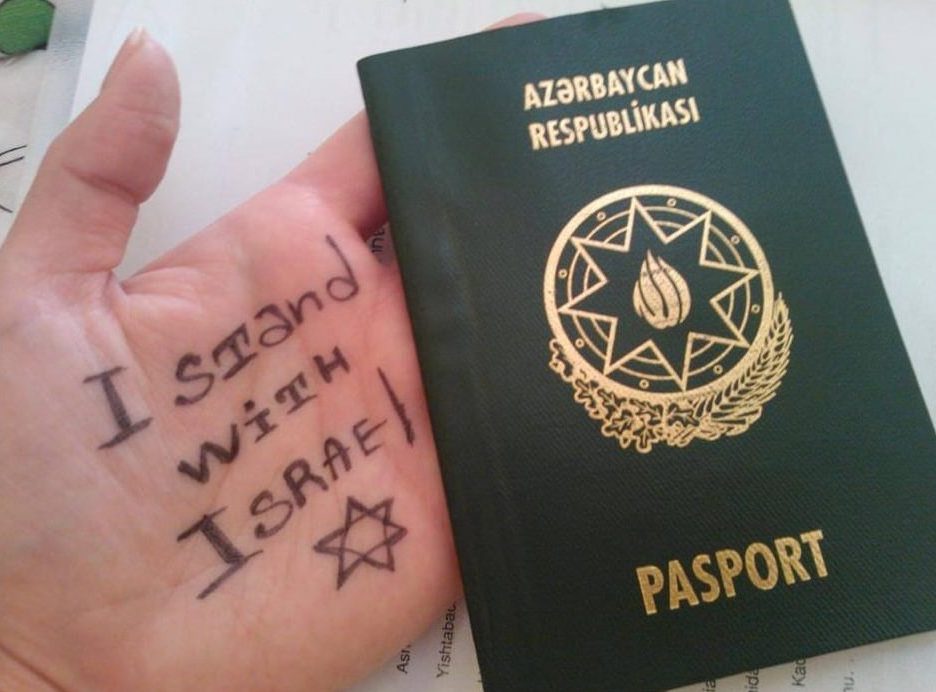 I STand
WiTH
ISRAEl
AZƏRBAYCAN
RESPUBLİKASI
PASPORT